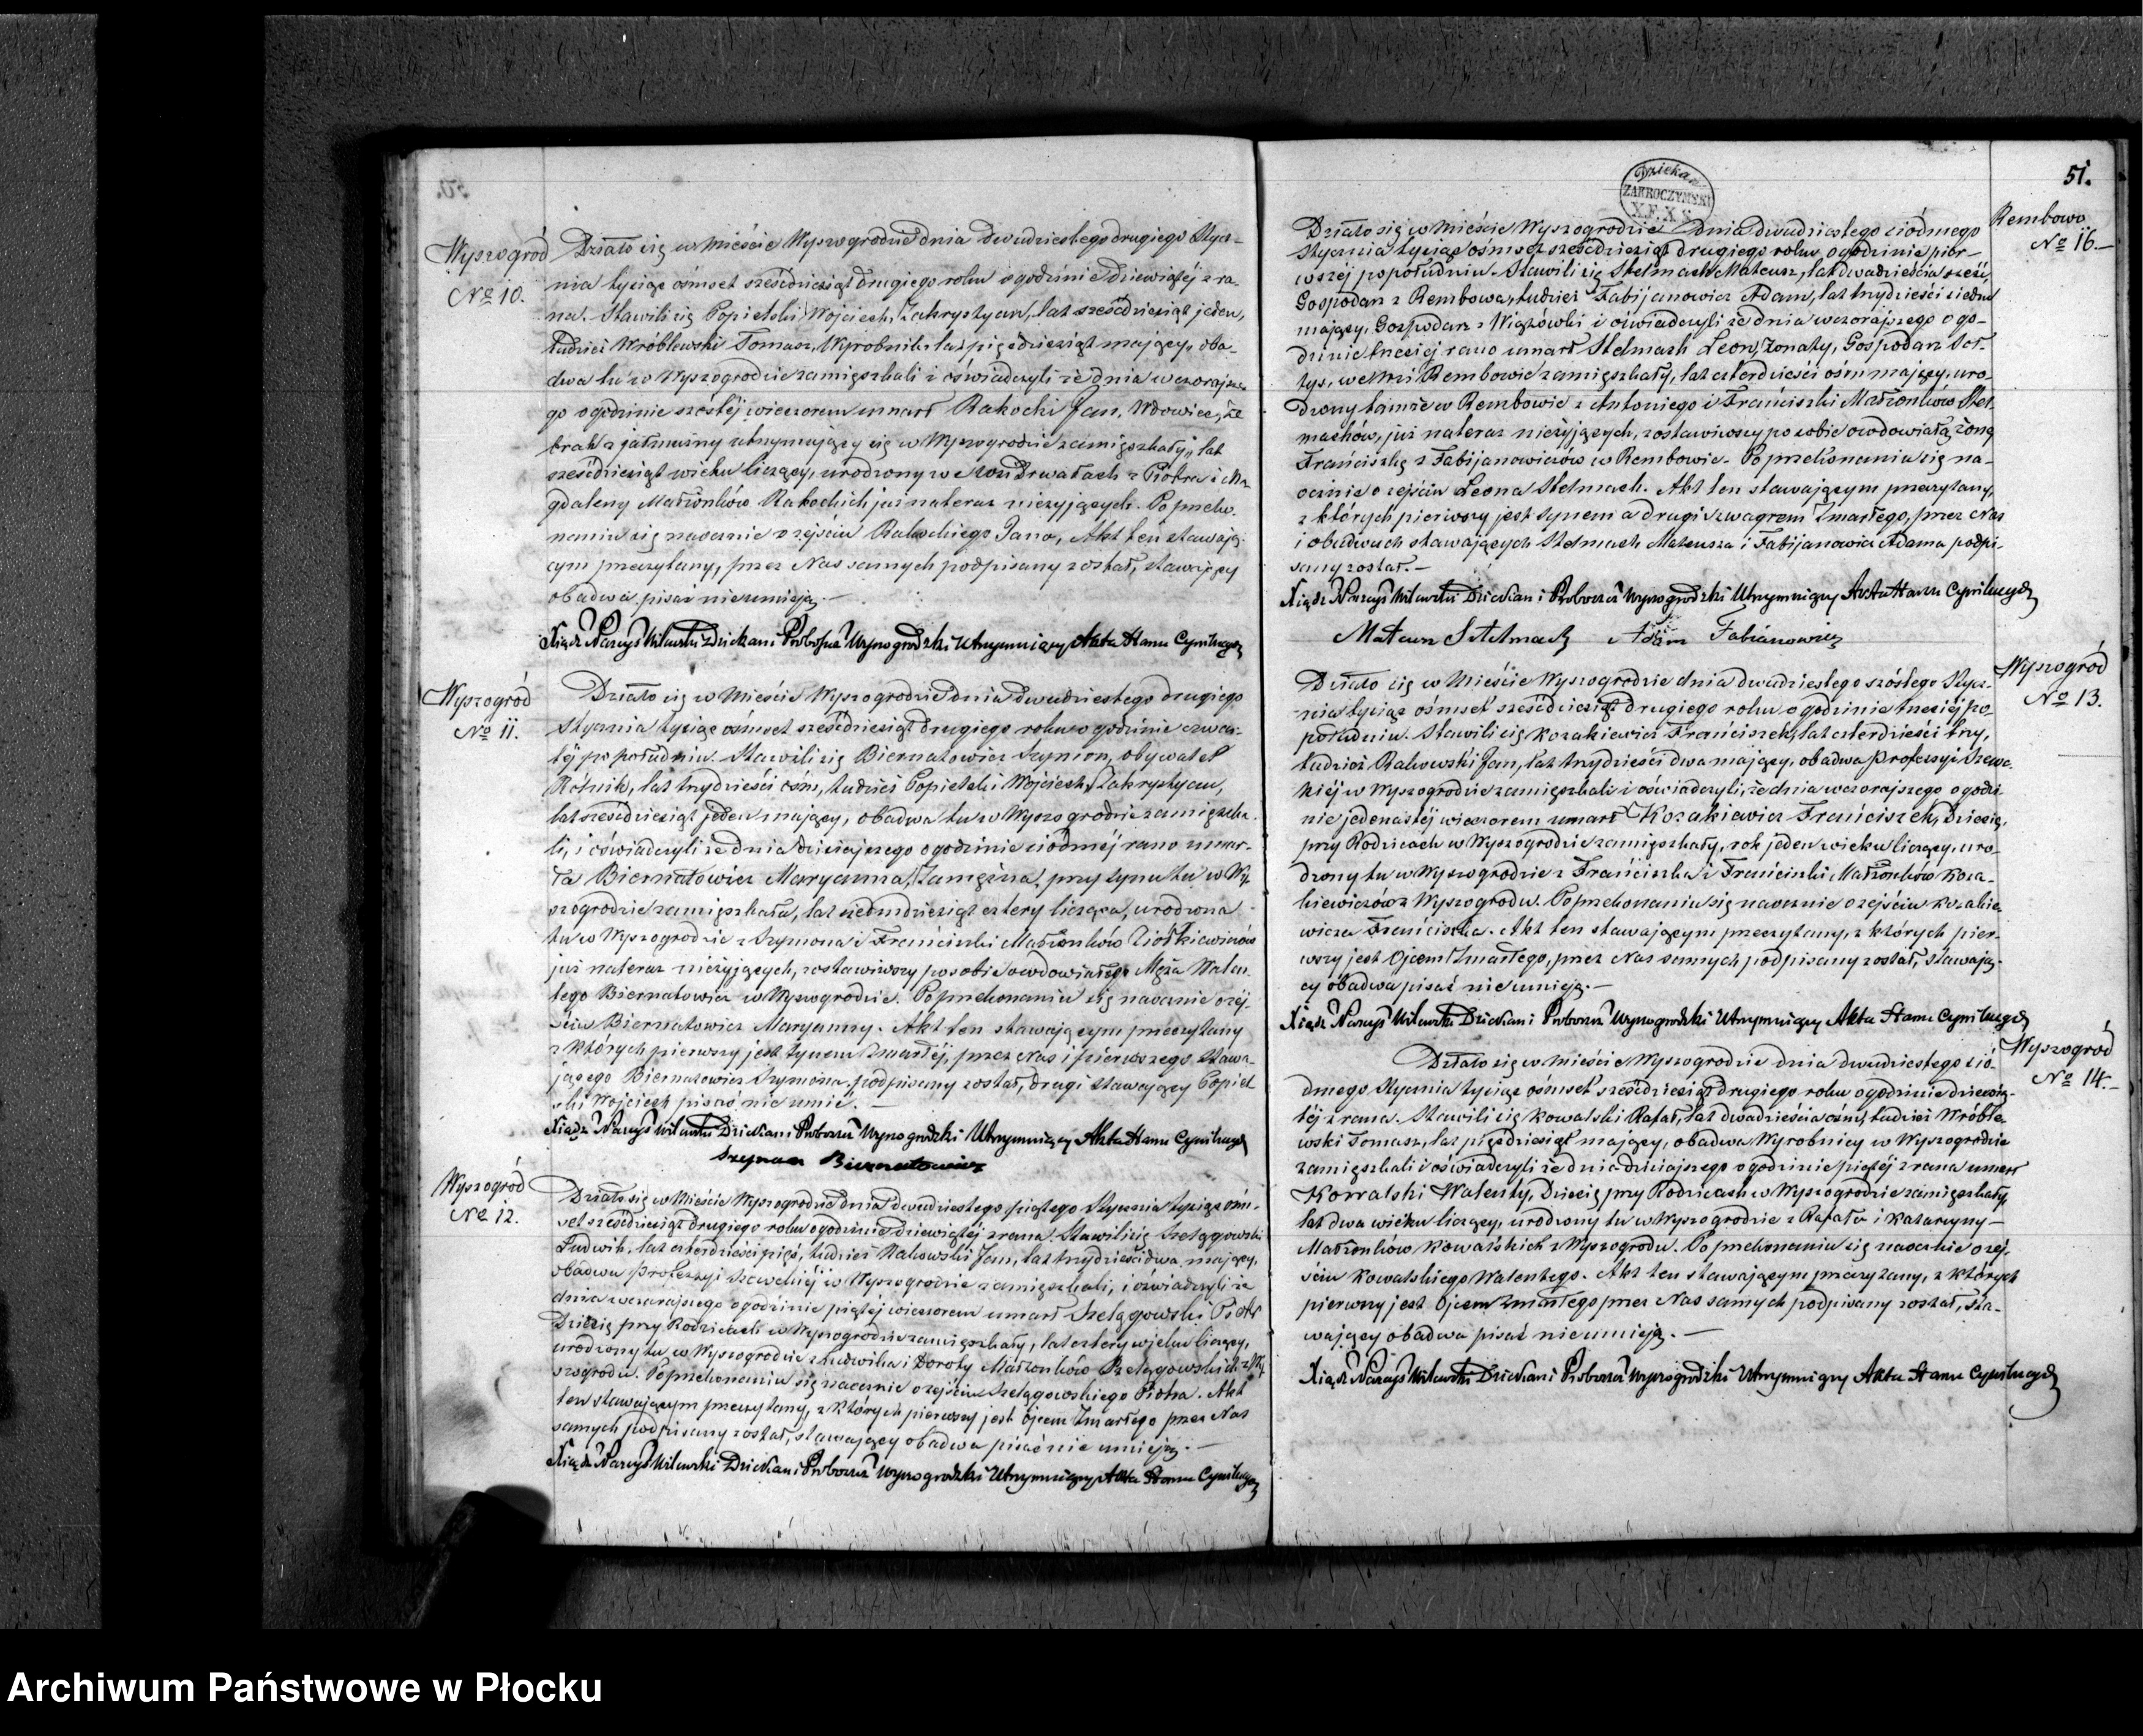 Wyszogród
No 10.
Działo się w Mieście Wyszogrodzie dnia dwudziestego drugiego Stycz-
nia tysiąc ośmset sześćdziesiąt drugiego roku o godzinie dziewiątéj z ra-
na. Stawili się Popielski Wojciech, Zakrystyan, lat sześćdziesiąt jeden,
tudzież Wróblewski Tomasz, Wyrobnik lat pięćdziesiąt mający, oba-
dwa tu w Wyszogrodzie zamieszkali i oświadczyli że dnia wczorajsze-
go o godzinie szóstéj wieczorem umarł Rakocki Jan, Wdowiec, że
brak z jałmużny utrzymujący się w Wyszogrodzie zamięszkały, lat
sześćdziesiąt wieku liczący, urodzony we Wsi Drwałach z Piotra i Ma
gdaleny Małżonków Rakockich już nateraz nieżyjących. Po przeko-
naniu się naocznie o zejściu Rakockiego Jana, Akt ten stawają-
cym przeczytany, przez Nas samych podpisany został, stawający
obadwa pisać nieumieją.—
Xiądz Narcyz Milewski Dziekan i Proboszcz Wyszogrodzki Utrzymujący Akta Stanu Cywilnego
Wyszogród
No 11.
Działo się w Mieście Wyszogrodzie dnia dwudziestego drugiego
Stycznia tysiąc ośmset sześćdziesiąt drugiego roku o godzinie czwar-
téj po południu. Stawili się Biernatowicz Szymon, obywatel
Rolnik, lat trzydzieści ośm, tudzież Popielski Wojciech, Zakrystyan,
lat sześćdziesiąt jeden mający, obadwa tu w Wyszogrodzie zamięszka-
li, i oświadczyli że dnia dzisiejszego o godzinie siódméj rano umar-
ła Biernatowicz Maryanna, Zamężna, przy synu tu w Wy-
szogrodzie zamięszkała, lat siedmdziesiąt cztery licząca, urodzona
tu w Wyszogrodzie z Szymona i Franciszki Małżonków Ziółkiewiczów
już nateraz nieżyjących, zostawiwszy po sobie owdowiałego Męża Walen-
tego Biernatowicz w Wyszogrodzie. Po przekonaniu się naocznie o zej-
ściu Biernatowicz Maryanny. Akt ten stawającym przeczytany
z których pierwszy jest synem Zmarłéj, przez Nas i pierwszego stawa-
jącego Biernatowicz Szymona podpisany został, drugi stawający Popiel-
ski Wojciech pisać nie umié.—
Xiądz Narcyz Milewski Dziekan i Proboszcz Wyszogrodzki Utrzymujący Akta Stanu Cywilnego
Szymon Biernatowicz
Wyszogród
No 12.
Działo się w Mieście Wyszogrodzie dnia dwudziestego piątego Stycznia tysiąc ośm-
set sześćdziesiąt drugiego roku o godzinie dziewiątéj z rana. Stawili się Szelągowski
Ludwik, lat czterdzieści pięć, tudzież Rakowski Jan, lat trzydzieści dwa mający,
obadwa professyi szewckiéj w Wyszogrodzie zamięszkali, i oświadczyli że
dnia wczorajszego o godzinie piątéj wieczorem umarł Szelągowski Piotr
Dziecię przy Rodzicach w Wyszogrodzie zamięszkały, lat cztery wieku liczący,
urodzony tu w Wyszogrodzie z Ludwika i Doroty Małżonków Szelągowskich z Wy-
szogrodu. Po przekonaniu się naocznie o zejściu Szelągowskiego Piotra. Akt
ten stawającym przeczytany, z których pierwszy jest Ojcem Zmarłego przez Nas
samych podpisany został, stawający obadwa pisać nie umieją.—
Xiądz Narcyz Milewski Dziekan i Proboszcz Wyszogrodzki Utrzymujący Akta Stanu Cywilnego
Dziekan
ZAKROCZYMSKI
51.
Rembowo
No 16.—
Działo się w Mieście Wyszogrodzie dnia dwudziestego siódmego
Stycznia tysiąc ośmset sześćdziesiąt drugiego roku, o godzinie pier-
wszéj popołudniu. Stawili się Stelmach Mateusz, lat dwadzieścia sześć,
Gospodarz z Rembowa, tudzież Fabijanowicz Adam, lat trzydzieści siedm
mający, Gospodarz z Wiązówki i oświadczyli że dnia wczorajszego o go-
dzinie trzeciéj rano umarł Stelmach Leon, Żonaty, Gospodarz Soł-
tys, we Wsi Rembowie zamięszkały, lat czterdzieści ośm mający, uro-
dzony tamże w Rembowie z Antoniego i Franciszki Małżonków Stel-
machów, już nateraz nieżyjących, zostawiwszy po sobie owdowiałą żonę
Franciszkę z Fabijanowiczów w Rembowie. Po przekonaniu się na-
ocznie o zejściu Leona Stelmach. Akt ten stawającym przeczytany,
z których pierwszy jest synem a drugi szwagrem Zmarłego, przez Nas
i obudwuch stawających Stelmach Mateusza i Fabijanowicz Adama podpi-
sany został.—
Xiądz Narcyz Milewski Dziekan i Proboszcz Wyszogrodzki Utrzymujący Akta Stanu Cywilnego
Mateusz Sztelmach Adam Fabianowicz
Wyszogród
No 13.
Działo się w Mieście Wyszogrodzie dnia dwudziestego szóstego Stycz-
nia tysiąc ośmset sześćdziesiąt drugiego roku o godzinie trzeciéj po-
południu. Stawili się Kozakiewicz Franciszek, lat czterdzieści trzy,
tudzież Rakowski Jan, lat trzydzieści dwa mający, obadwa professyi szewc-
kiéj w Wyszogrodzie zamięszkali i oświadczyli, że dnia wczorajszego o godzi-
nie jedenastéj wieczorem umarł Kozakiewicz Franciszek, Dziecię,
przy Rodzicach w Wyszogrodzie zamięszkały, rok jeden wieku liczący, uro-
dzony tu w Wyszogrodzie z Franciszka i Franciszki Małżonków Koza-
kiewiczów z Wyszogrodu. Po przekonaniu się naocznie o zejściu Kozakie-
wicza Franciszka. Akt ten stawającym przeczytany, z których pier-
wszy jest Ojcem Zmarłego, przez Nas samych podpisany został, stawają-
cy obadwa pisać nie umieją.—
Xiądz Narcyz Milewski Dziekan i Proboszcz Wyszogrodzki Utrzymujący Akta Stanu Cywilnego
Wyszogród
No 14.—
Działo się w Mieście Wyszogrodzie dnia dwudziestego sió-
dmego Stycznia tysiąc ośmset sześćdziesiąt drugiego roku o godzinie dziewią-
téj z rana. Stawili się Kowalski Rafał, lat dwadzieścia ośm, tudzież Wróble-
wski Tomasz, lat pięćdziesiąt mający, obadwa Wyrobnicy w Wyszogrodzie
zamięszkali i oświadczyli że dnia dzisiajszego o godzinie piątéj z rana umarł
Kowalski Walenty, Dziecię przy Rodzicach w Wyszogrodzie zamięszkały,
lat dwa wieku liczący, urodzony tu w Wyszogrodzie z Rafała i Katarzyny—
Małżonków Kowalskich z Wyszogrodu. Po przekonaniu się naocznie o zej-
ściu Kowalskiego Walentego. Akt ten stawającym przeczytany, z których
pierwszy jest Ojcem Zmarłego przez Nas samych podpisany został, sta-
wający obadwa pisać nie umieją.—
Xiądz Narcyz Milewski Dziekan i Proboszcz Wyszogrodzki Utrzymujący Akta Stanu Cywilnego
Archiwum Państwowe w Płocku